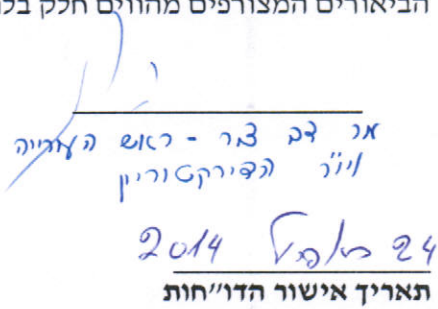 הביאורים המצורפים מהווים חלק בל
מר דב צור - ראש העירייה
ויו"ר הדירקטוריון
24 באפריל 2014
תאריך אישור הדו״חות